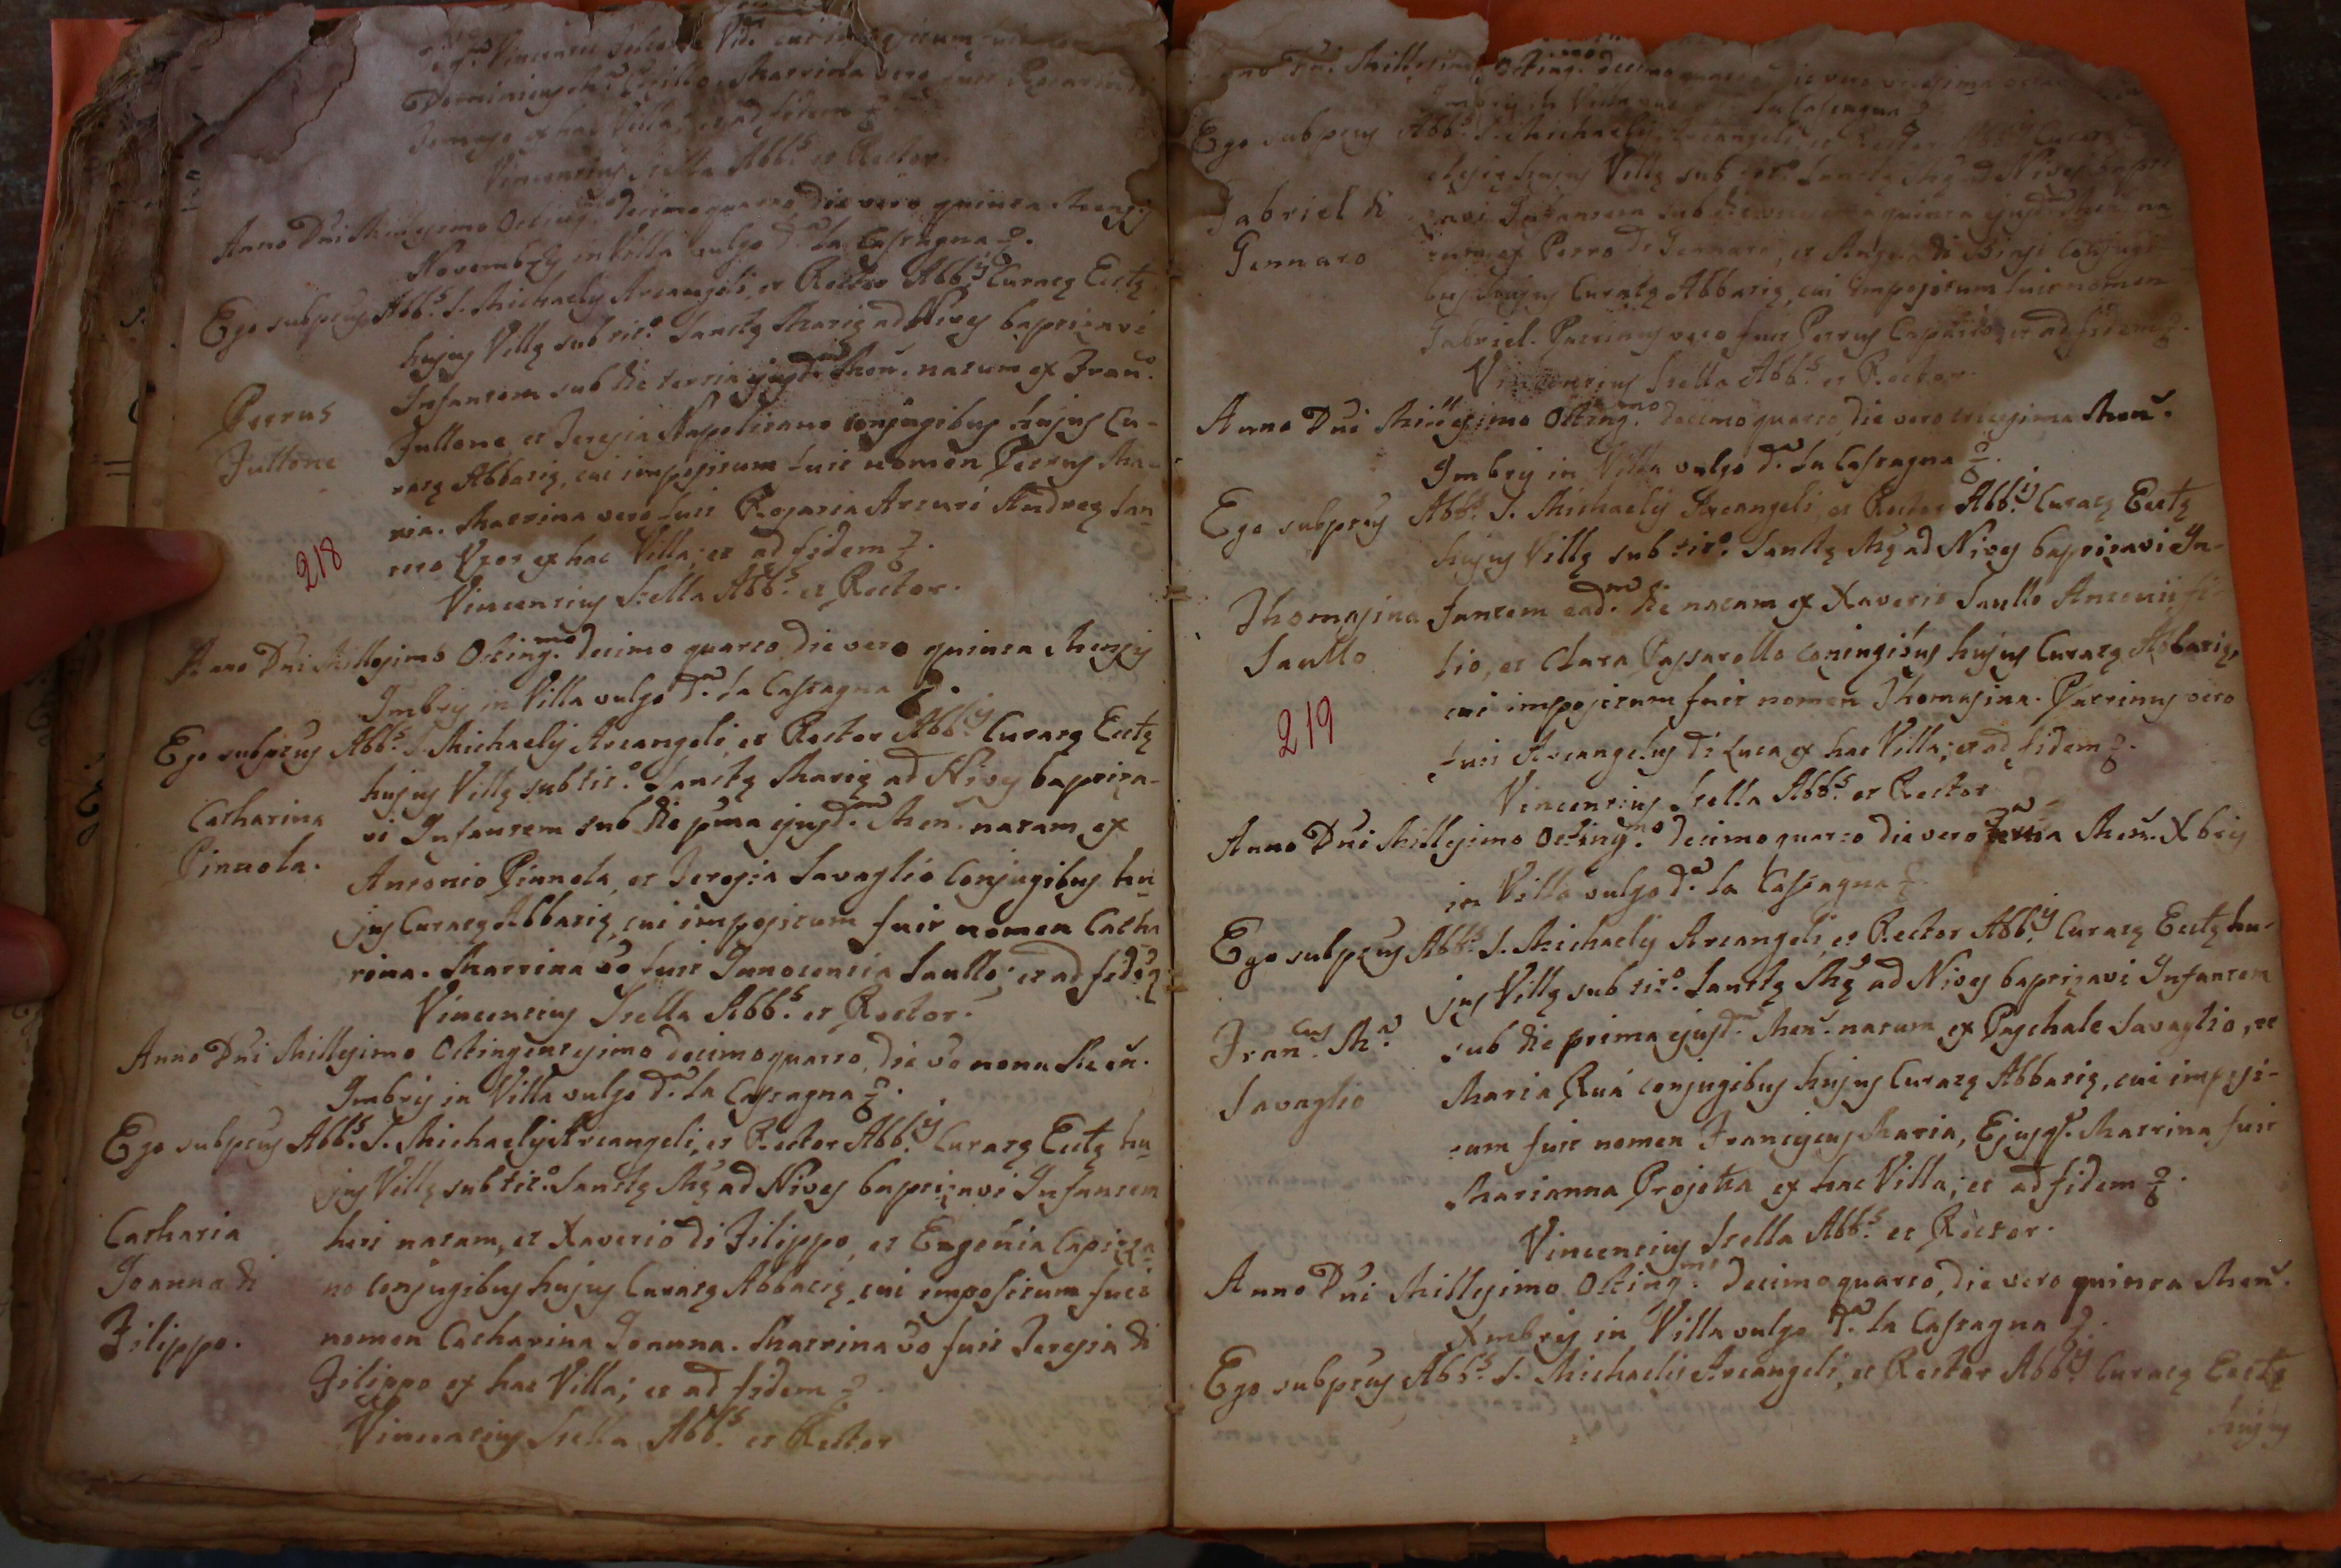 Dominicus Ma. Cirillo. Matrina vero fuit Rosaria
ex hac Villa; et ad fidem
Vincentius Stella Abb.s et Rector.
Anno Dni Millesimo Octing.mo decimoquarto, die vero quinta Mensis
Novembris in Villa vulgo d.a la Castagna
Ego subptus Abb.s S. Michaelis Arcangeli, et Rector Abb.is Curatę Ecctę
hujus Villę sub tit.o Sanctę Marię ad Nives baptizavi
Infantem sub die tertia ejusd.m Men. natum ex Fran.co
Fullone, et Teresia Napolitano conjugibus hujus Cu-
ratę Abbatię, cui impositum fuit nomen Petrus Ma-
ria. Matrina vero fuit Rosaria Arcuri Andreę San
Uxor ex hac Villa; et ad fidem
Vincentius Stella Abb.s et Rector.
Petrus
Fullone
218
Anno Dni Millesimo Octing.mo decimo quarto, die vero quinta Mensis
Xmbris in Villa vulgo d.a la Castagna
Ego subptus Abb.s S. Michaelis Arcangeli, et Rector Abb.is Curatę Ecctę
hujus Villę sub tit.o Sanctę Marię ad Nives baptiza-
vi Infantem sub die pma ejusd.m Men. natam ex
Antonio Pinnola, et Teresia Savaglio Conjugibus hu
jus Curatę Abbatię, cui impositum fuit nomen Catha
rina. Matrina vo fuit Innocentia Saullo; et ad fidem
Vincentius Stella Abb.s et Rector.
Catharina
Pinnola.
Anno Dni Millesimo Octingentesimo decimoquarto, die vo nona Men.
Xmbris in Villa vulgo d.a la Castagna
Ego subptus Abb.s S. Michaelis Arcangeli, et Rector Abb.is Curatę Ecctę hu
jus Villę sub tit.o Sanctę Mę ad Nives baptizavi Infantem
heri natam, et Xaverio di Filippo, et Eugenia Capizza
no conjugibus hujus Curatę Abbatię, cui impositum fuit
nomen Catharina Joanna. Matrina vo fuit Teresia di
Filippo ex hac Villa; et ad fidem
Vincentius Stella Abb.s et Rector
Catharia
Joanna di
Filippo.
Anno Dni Millesimo Octing.mo decimoquarto die vero vigesima
in Villa la Castagna
Ego subptus Abb.s S. Michaelis Arcangeli, et Rector Abb.is Curatę
hujus Villę sub tit.o Sanctę Mę ad Nives bapti
zavi Infantem sub die quinta ejusd.m Men. na
tum ex Petro di Gennaro, et Conjugi
bus hujus Curatę Abbatię, cui impositum fuit nomen
Gabriel. Patrinus vero fuit Petrus et ad fidem
Vincentius Stella Abb.s et Rector.
Gabriel di
Gennaro
Anno Dni Millesimo Octing.mo decimoquarto, die vero trigesima Men.
Xmbris in Villa vulgo d.a la Castagna
Ego subptus Abb.s S. Michaelis Arcangeli, et Rector Abb.is Curatę Ecctę
hujus Villę sub tit.o Sanctę Mę ad Nives baptizavi In-
fantem ead.m die natam ex Xaverio Saullo Antonii fi-
lio, et Clara Passarello conjugibus hujus Curatę Abbatię,
cui impositum fuit nomen Thomasina. Patrinus vero
fuit Arcangelus di Luca ex hac Villa; et ad fidem
Vincentius Stella Abb.s et Rector
Thomasina
Saullo
219
Anno Dni Millesimo Octing.mo decimoquarto die vero Men. Xbris
in Villa vulgo d.a la Castagna
Ego subptus Abb.s S. Michaelis Arcangeli, et Rector Abb.is Curatę Ecctę hu-
jus Villę sub tit.o Sanctę Mę ad Nives baptizavi Infantem
sub die prima ejusd.m Men. natum ex Paschale Savaglio, et
Maria Ruá conjugibus hujus Curatę Abbatię, cui imposi-
tum fuit nomen Franciscus Maria, Ejusq. Matrina fuit
Marianna Projetta ex hac Villa; et ad fidem
Vincentius Stella Abb.s et Rector.
Fran.cus M.a
Savaglio
Anno Dni Millesimo Octing.mo decimoquarto, die vero quinta Men.
Xmbris in Villa vulgo d.a la Castagna
Ego subptus Abb.s S. Michaelis Arcangeli, et Rector Abb.is Curatę Ecctę
hujus